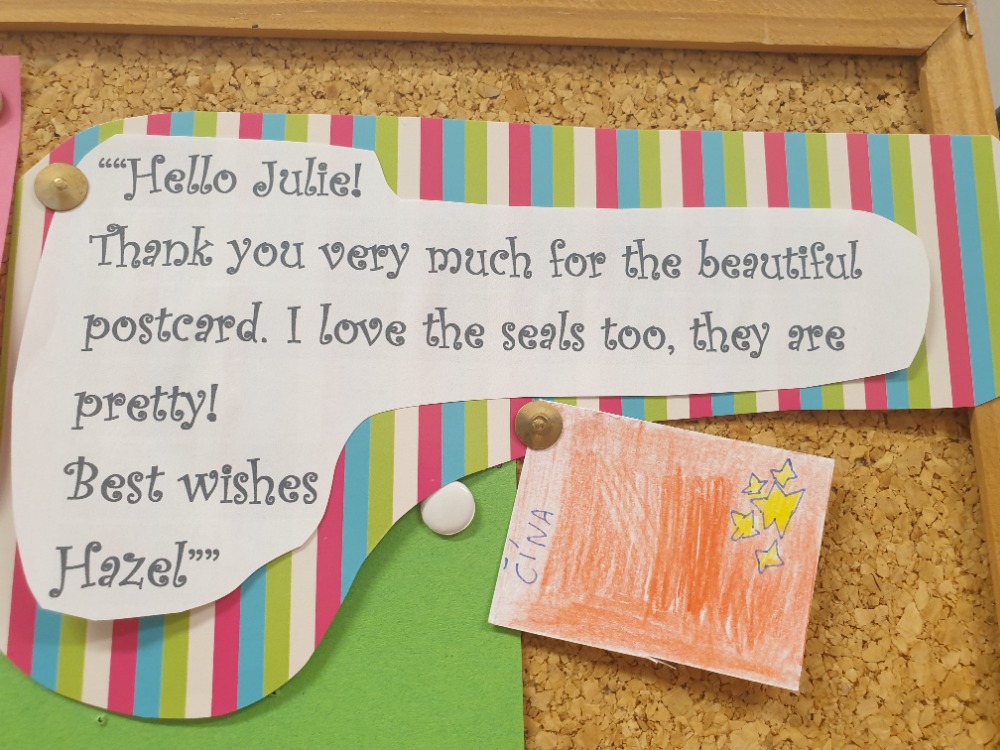 ““Hello Julie!
Thank you very much for the beautiful
postcard. I love the seals too, they are
pretty!
Best wishes
Hazel””
ČÍNA